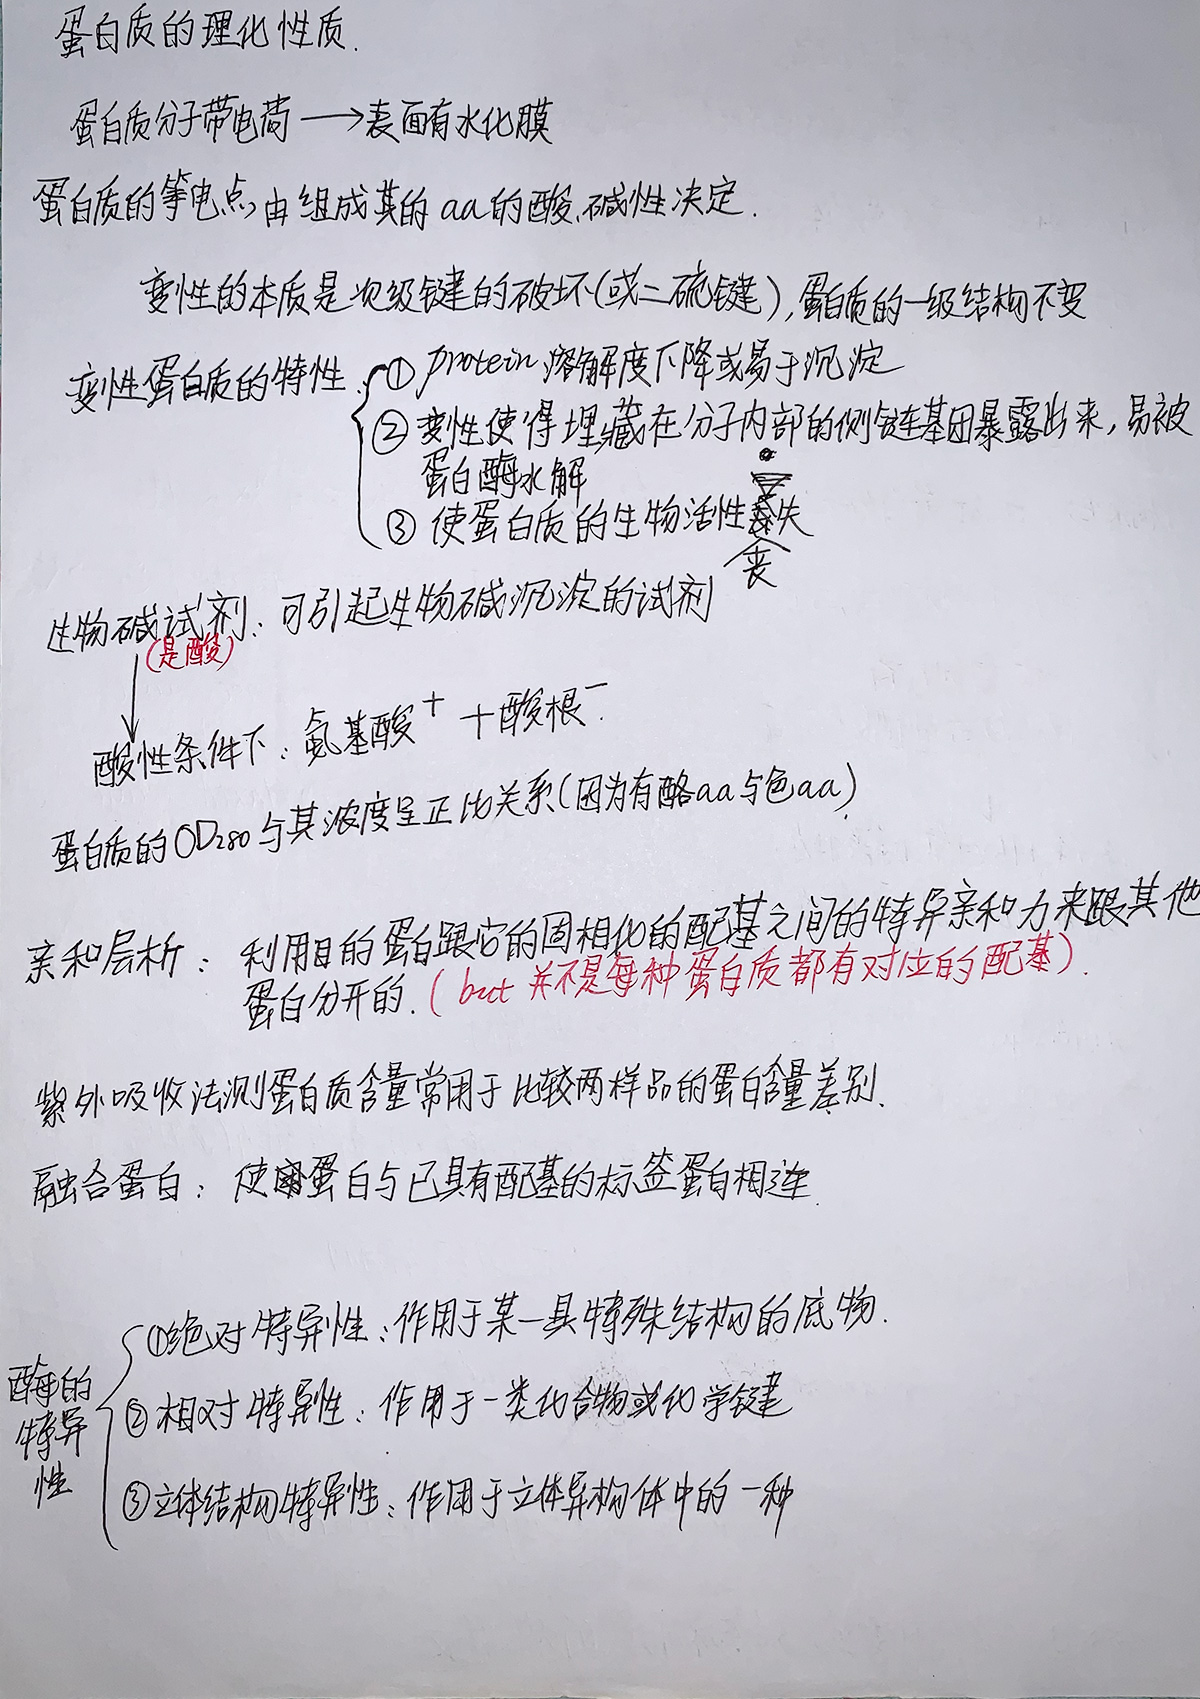 蛋白质的理化性质.
蛋白质分子带电荷 → 表面有水化膜
蛋白质的等电点,由组成其的aa的酸、碱性决定.
变性的本质是次级键的破坏(或二硫键),蛋白质的一级结构不变
变性蛋白质的特性
① protein溶解度下降或易于沉淀
② 变性使得埋藏在分子内部的侧链基团暴露出来,易被
蛋白酶水解
③ 使蛋白质的生物活性丧失
生物碱试剂:可引起生物碱沉淀的试剂
(是酸)
↓
酸性条件下:氨基酸⁺ + 酸根⁻.
蛋白质的OD₂₈₀与其浓度呈正比关系(因为有酪aa与色aa)
亲和层析:利用目的蛋白跟它的固相化的配基之间的特异亲和力来跟其他
蛋白分开的.(but 并不是每种蛋白质都有对应的配基).
紫外吸收法测蛋白质含量常用于比较两样品的蛋白含量差别.
融合蛋白:使蛋白与已具有配基的标签蛋白相连.
酶的
特异
性
①绝对特异性:作用于某一具特殊结构的底物.
②相对特异性:作用于一类化合物或化学键
③立体结构特异性:作用于立体异构体中的一种